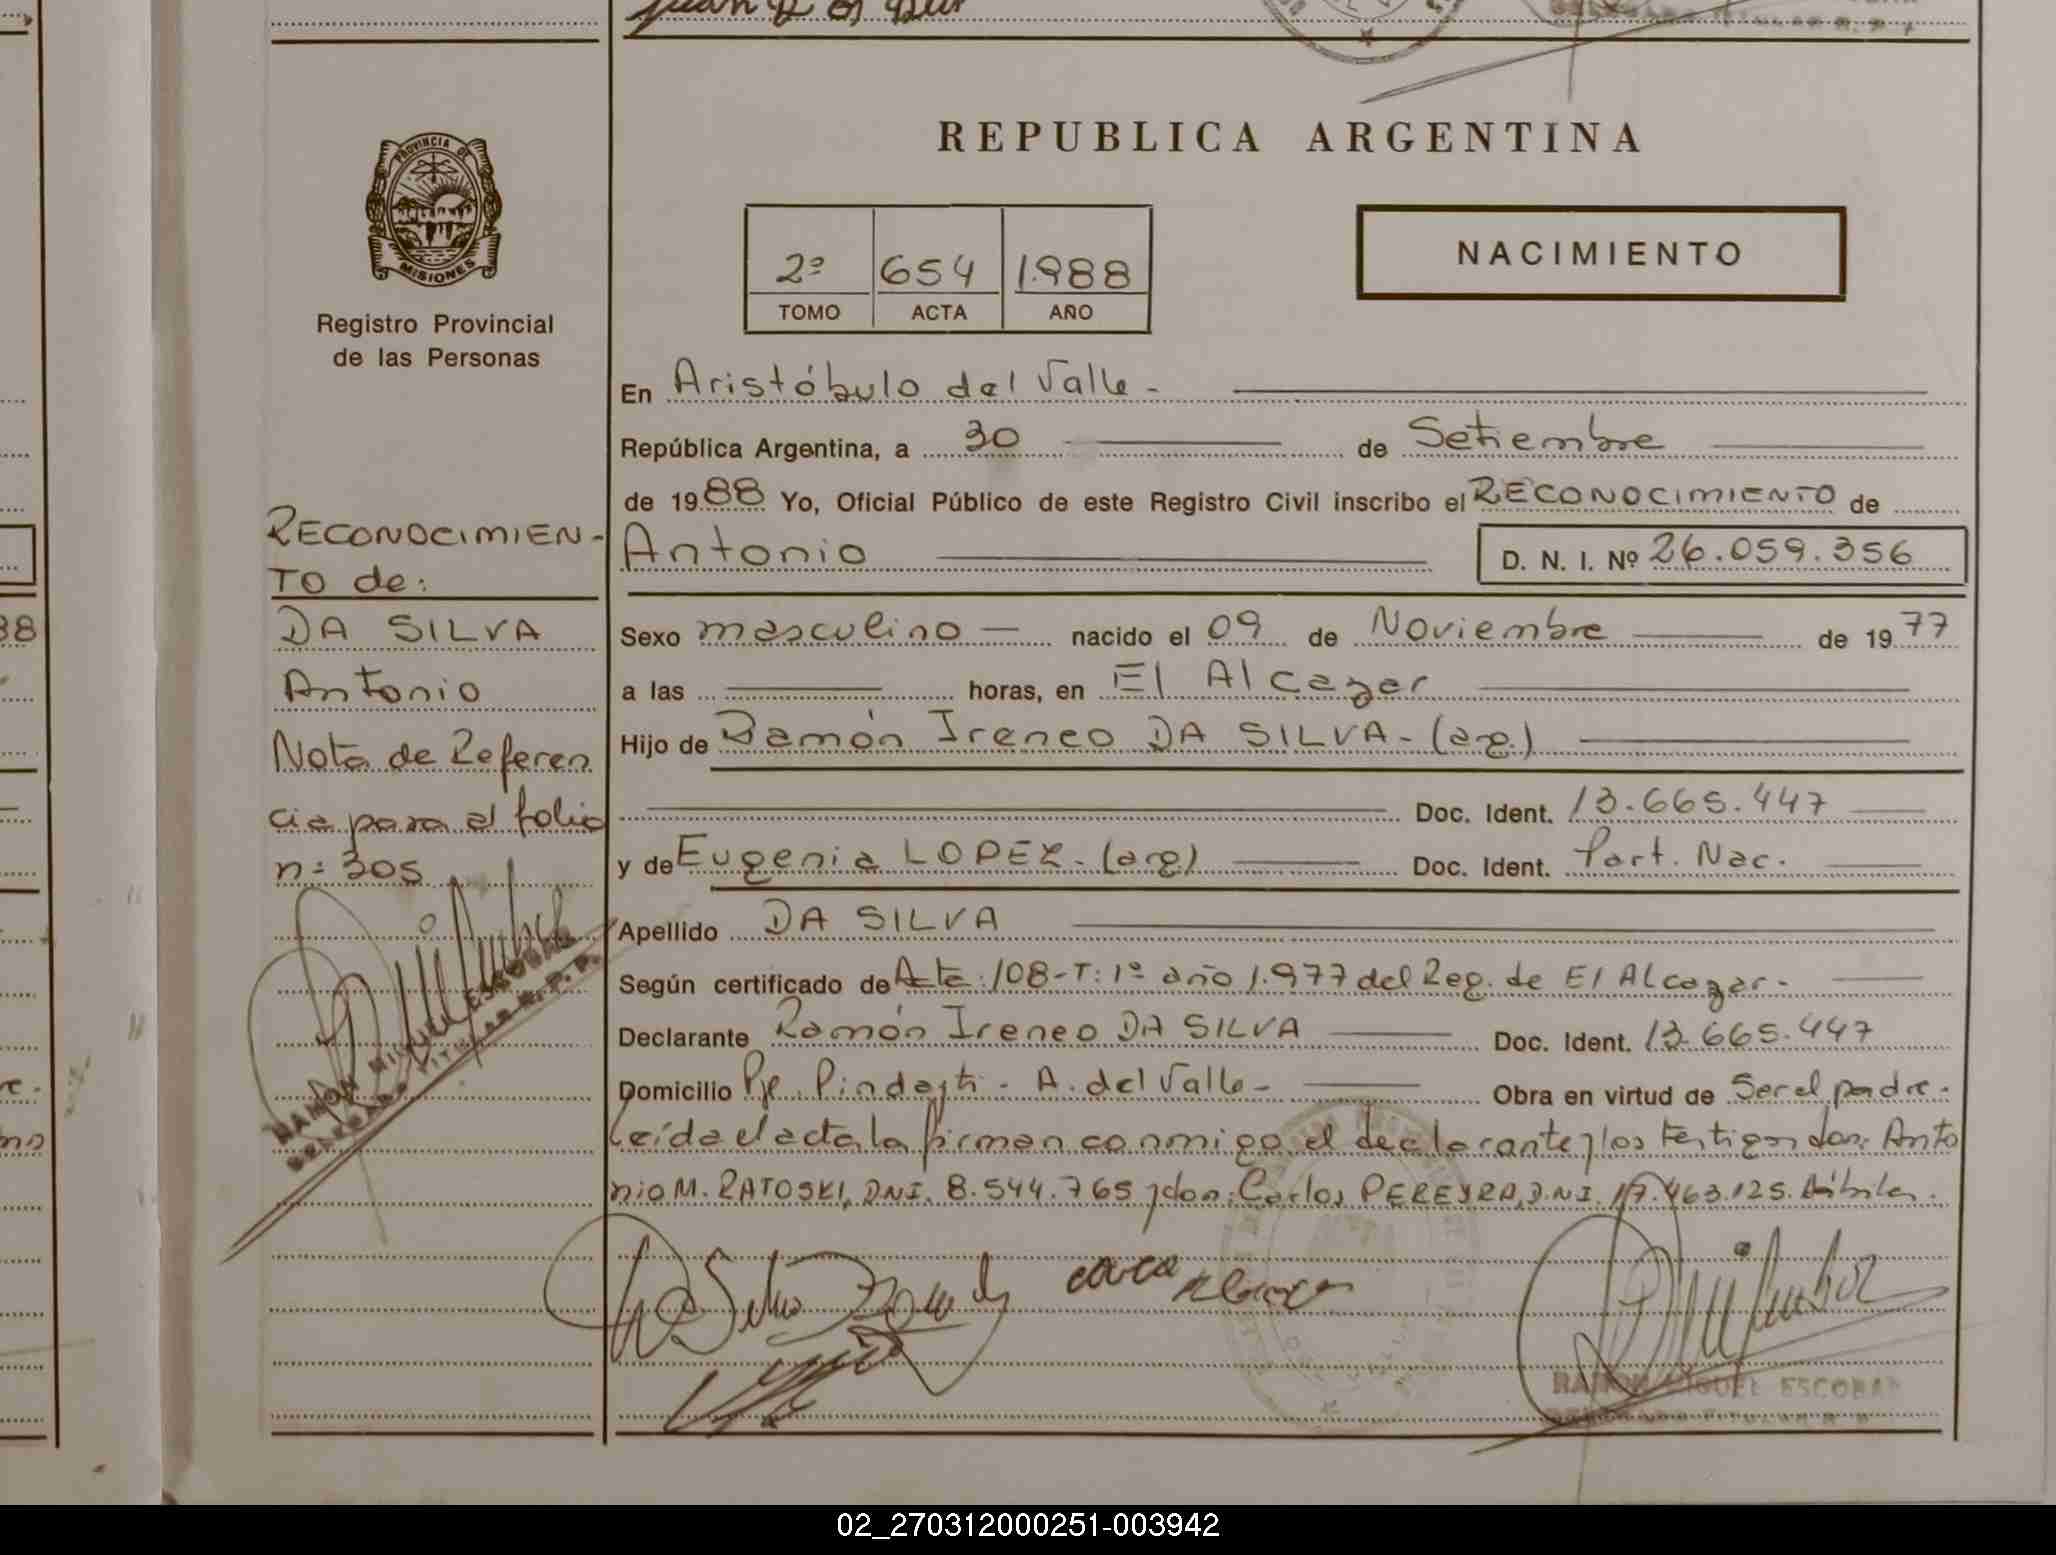 REPUBLICA ARGENTINA
PROVINCIA DE
MISIONES
Registro Provincial
de las Personas
2º 654 1.988
TOMO ACTA AÑO
NACIMIENTO
RECONOCIMIEN-
TO de:
DA SILVA
Antonio
Nota de Referen
cia para el folio
n: 305
RAMON MIGUEL ESCOBAR
DELEGADO TITULAR R. P. P.
En Aristóbulo del Valle-
República Argentina, a 30 de Setiembre
de 1988 Yo, Oficial Público de este Registro Civil inscribo el RECONOCIMIENTO de
Antonio D. N. I. Nº 26.059.356
Sexo masculino nacido el 09 de Noviembre de 1977
a las horas, en El Alcazar
Hijo de Ramón Ireneo DA SILVA-(arg.)
Doc. Ident. 13.665.447
y de Eugenia LOPEZ-(arg) Doc. Ident. Part. Nac.
Apellido DA SILVA
Según certificado de Acta:108-T:1º año 1.977 del Reg. de El Alcazar-
Declarante Ramón Ireneo DA SILVA Doc. Ident. 13.665.447
Domicilio Pindayti - A. del Valle- Obra en virtud de Ser el padre-
Leída el acta la firman conmigo el declarante y los testigos don: Anto
nio M. RATOSKI, DNI. 8.544.765 y don: Carlos PEREYRA, D.N.I. 17.463.125. Hábiles.
RAMON MIGUEL ESCOBAR
DELEGADO TITULAR R. P.
02_270312000251-003942